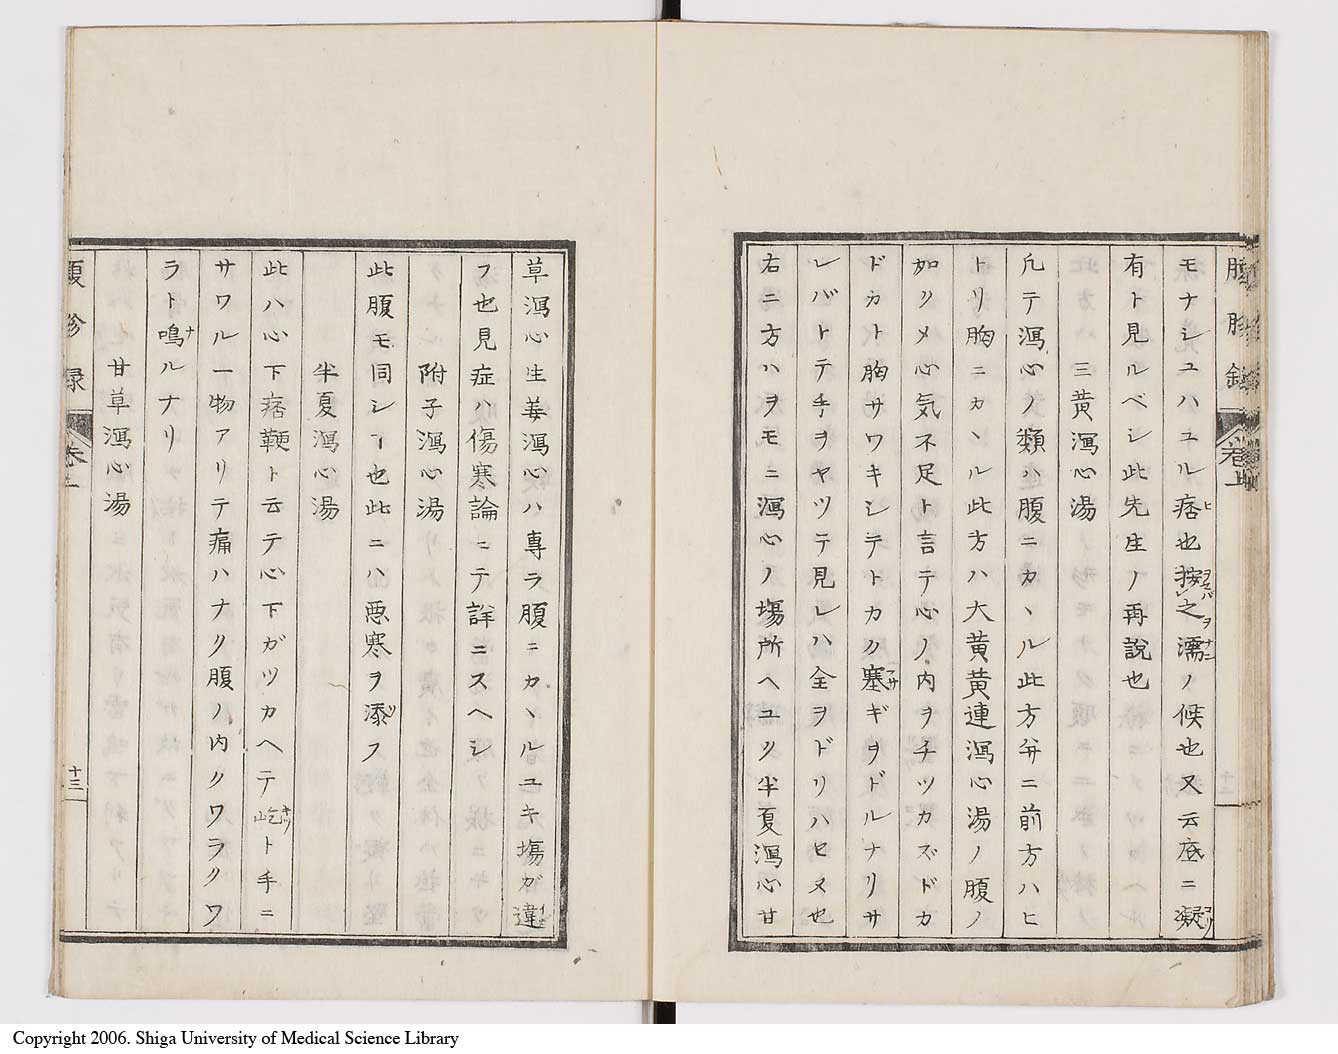 モナシユハユル痞也按之濡ノ候也又云底ニ凝
有ト見ルベシ此先生ノ再說也
三黄瀉心湯
凡テ瀉心ノ類ハ腹ニカヽル此方并ニ前方ハヒ
トリ胸ニカヽル此方ハ大黄黄連瀉心湯ノ腹ノ
如クメ心気不足ト言テ心ノ内ヲチツカズドカ
ドカト胸サワキシテトカク塞ギヲドルナリサ
レバトテ手ヲヤツテ見レハ全ヲドリハセヌ也
右ニ方ハヲモニ瀉心ノ塲所ヘユク半夏瀉心甘
草瀉心生姜瀉心ハ專ラ腹ニカヽルユキ塲ガ違
フ也見症ハ傷寒論ニテ詳ニスヘシ
附子瀉心湯
此腹モ同シヿ也此ニハ悪寒ヲ添フ
半夏瀉心湯
此ハ心下痞鞕ト云テ心下ガツカヘテ屹ト手ニ
サワル一物アリテ痛ハナク腹ノ内クワラクワ
ラト鳴ルナリ
甘草瀉心湯
腹診録
卷上
十三
Copyright 2006. Shiga University of Medical Science Library